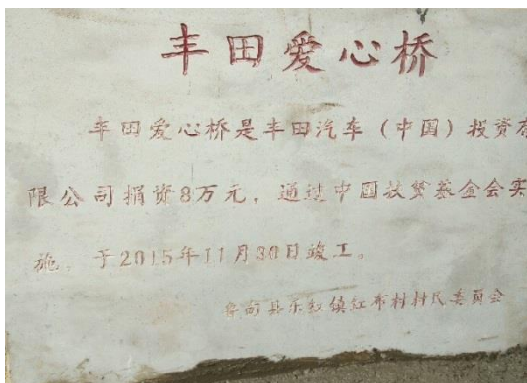 丰田爱心桥
丰田爱心桥是丰田汽车（中国）投资有
限公司捐资8万元，通过中国扶贫基金会实
施，于2015年11月30日竣工。
鲁甸县乐红镇红布村村民委员会